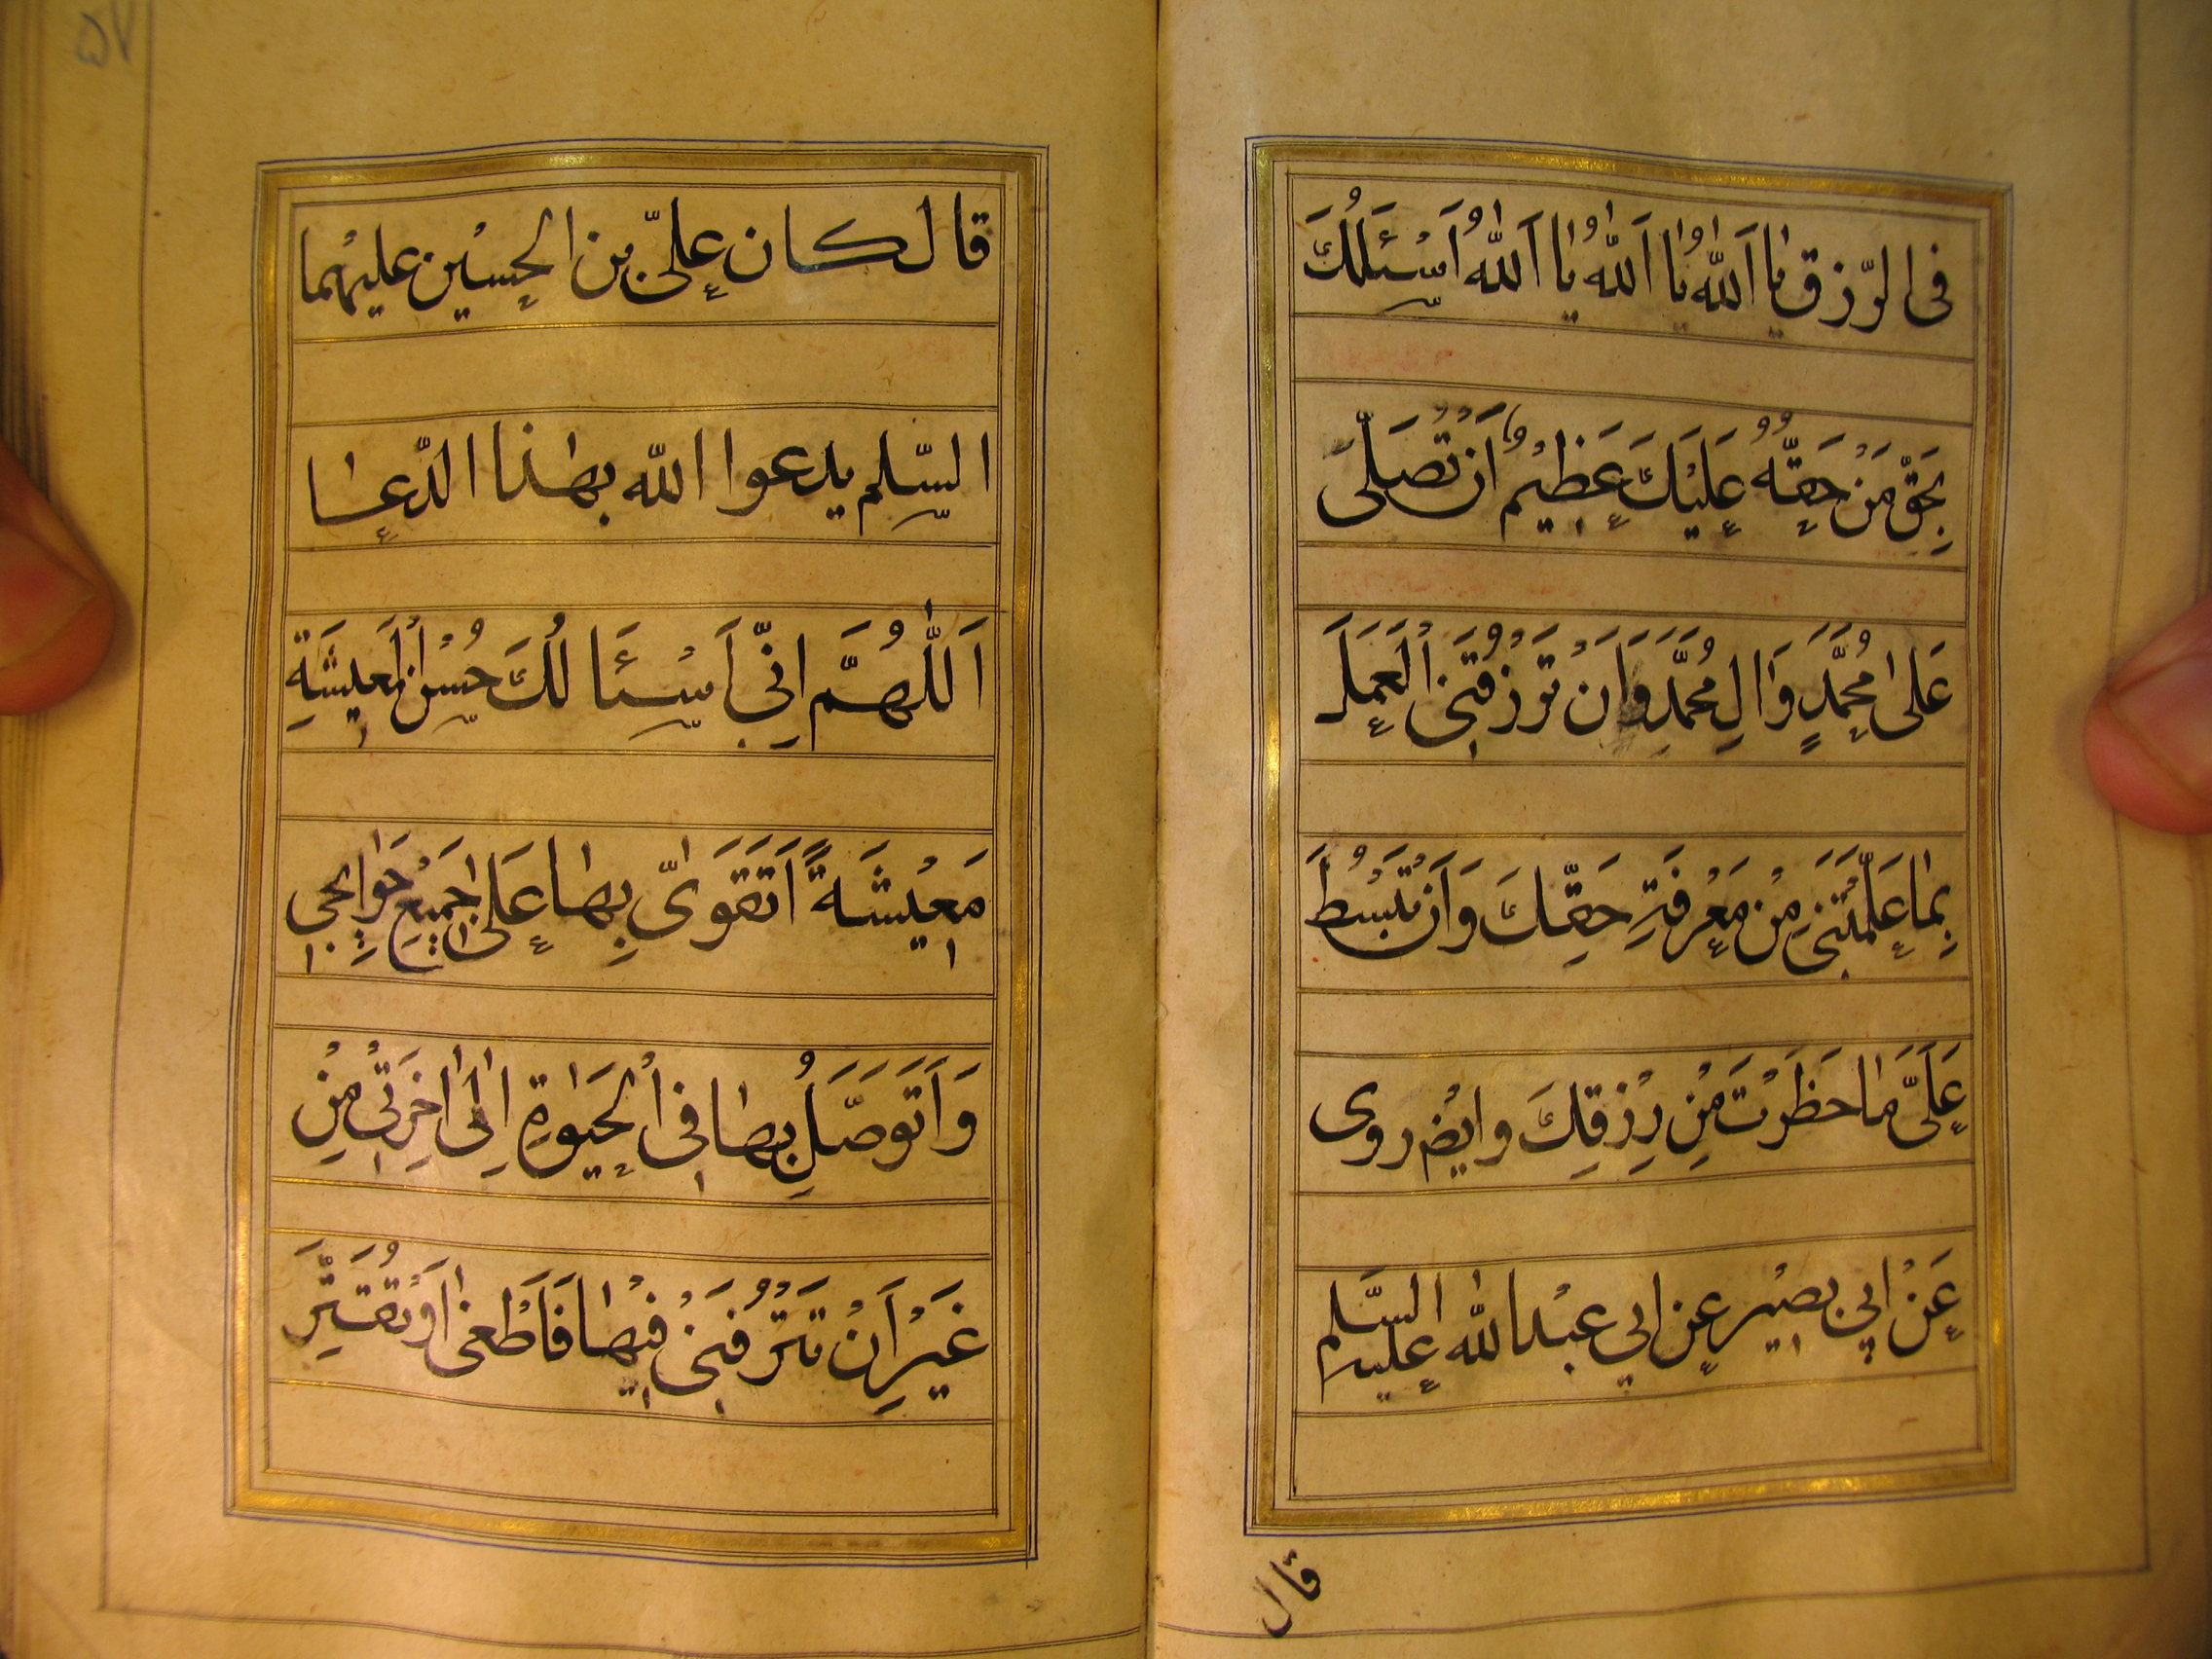 فى الرّزق يٰا اَللّٰهُ يٰا اَللّٰهُ يٰا اَللّٰهُ اَسْئَلُكَ
بِحَقِّ مَنْ حَقُّهُ عَلَيْكَ عَظِيْمٌ اَنْ تُصَلِّىَ
عَلىٰ مُحَمَّدٍ وَاٰلِ مُحَمَّدٍ وَاَنْ تَرْزُقَنِى الْعَمَلَ
بِمٰا عَلَّمْتَنِى مِنْ مَعْرِفَةِ حَقِّكَ وَاَنْ تَبْسُطَ
عَلَىَّ مٰا حَظَرْتَ مِنْ رِزْقِكَ وايْضً روى
عَنْ ابي بصيْر عن ابي عبْد اللّٰه عليه السَّلم
قال
۵۷
قال كان علىّ بن الحسيْن عليهْما
السّلم يدعوا اللّه بهٰذا الدّعٰا
اَللّٰهُمَّ اِنِّى اَسْئَا لُكَ حُسْنَ الْمَعِيشَةِ
مَعِيْشَةً اَتَقَوىّٰ بِهٰا عَلىٰ جَمِيْعِ حَوٰائِجِى
وَاَتَوَصَّلُ بِهٰا فِى الْحَيٰوةِ اِلىٰ اٰخِرَتِىْ مِنْ
غَيْرِ اَنْ تُتْرِفَنِىْ فِيْهٰا فَاَطْغىٰ اَوْ تُقَتِّرَ